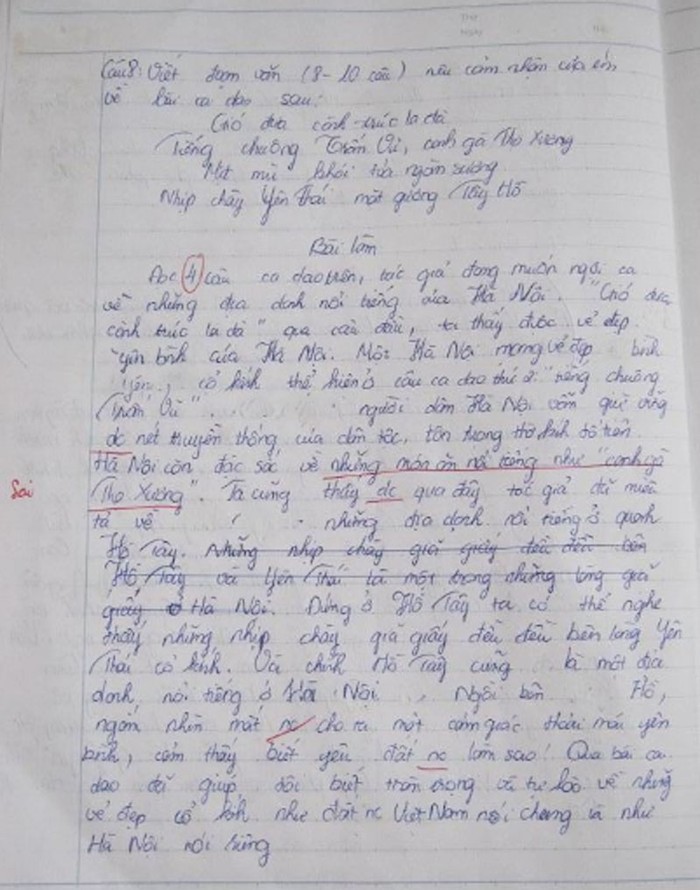 Câu 8: Viết đoạn văn (8-10 câu) nêu cảm nhận của em
về bài ca dao sau:
Gió đưa cành trúc la đà
Tiếng chuông Trấn Vũ, canh gà Thọ Xương
Mịt mù khói tỏa ngàn sương
Nhịp chày Yên Thái mặt gương Tây Hồ
Bài làm
Đọc 4 câu ca dao trên, tác giả đang muốn ngợi ca
về những địa danh nổi tiếng của Hà Nội. "Gió đưa
cành trúc la đà" qua câu đầu, ta thấy được vẻ đẹp
yên bình của Hà Nội. Một Hà Nội mang vẻ đẹp bình
yên, cổ kính thể hiện ở câu ca dao thứ 2: "tiếng chuông
Trấn Vũ" người dân Hà Nội vẫn giữ vững
dc nét truyền thống của dân tộc, tôn trọng thờ kính tổ tiên.
Hà Nội còn đặc sắc về những món ăn nổi tiếng như "canh gà
Sai
Thọ Xương". Ta cũng thấy dc qua đây tác giả đã miêu
tả về những địa danh nổi tiếng ở quanh
Hồ Tây. Những nhịp chày giã giấy đều đều bên
Hồ Tây và Yên Thái là một trong những làng giã
giấy ở Hà Nội. Đứng ở Hồ Tây ta có thể nghe
thấy những nhịp chày giã giấy đều đều bên làng Yên
Thái cổ kính. Và chính Hồ Tây cũng là một địa
danh nổi tiếng ở Hà Nội. Ngồi bên Hồ,
ngắm nhìn mặt nc cho ra một cảm giác thoải mái yên
bình, cảm thấy biết yêu đất nc làm sao! Qua bài ca
dao đã giúp tôi biết trân trọng và tự hào về những
vẻ đẹp cổ kính như đất nc Việt Nam nói chung và như
Hà Nội nói riêng